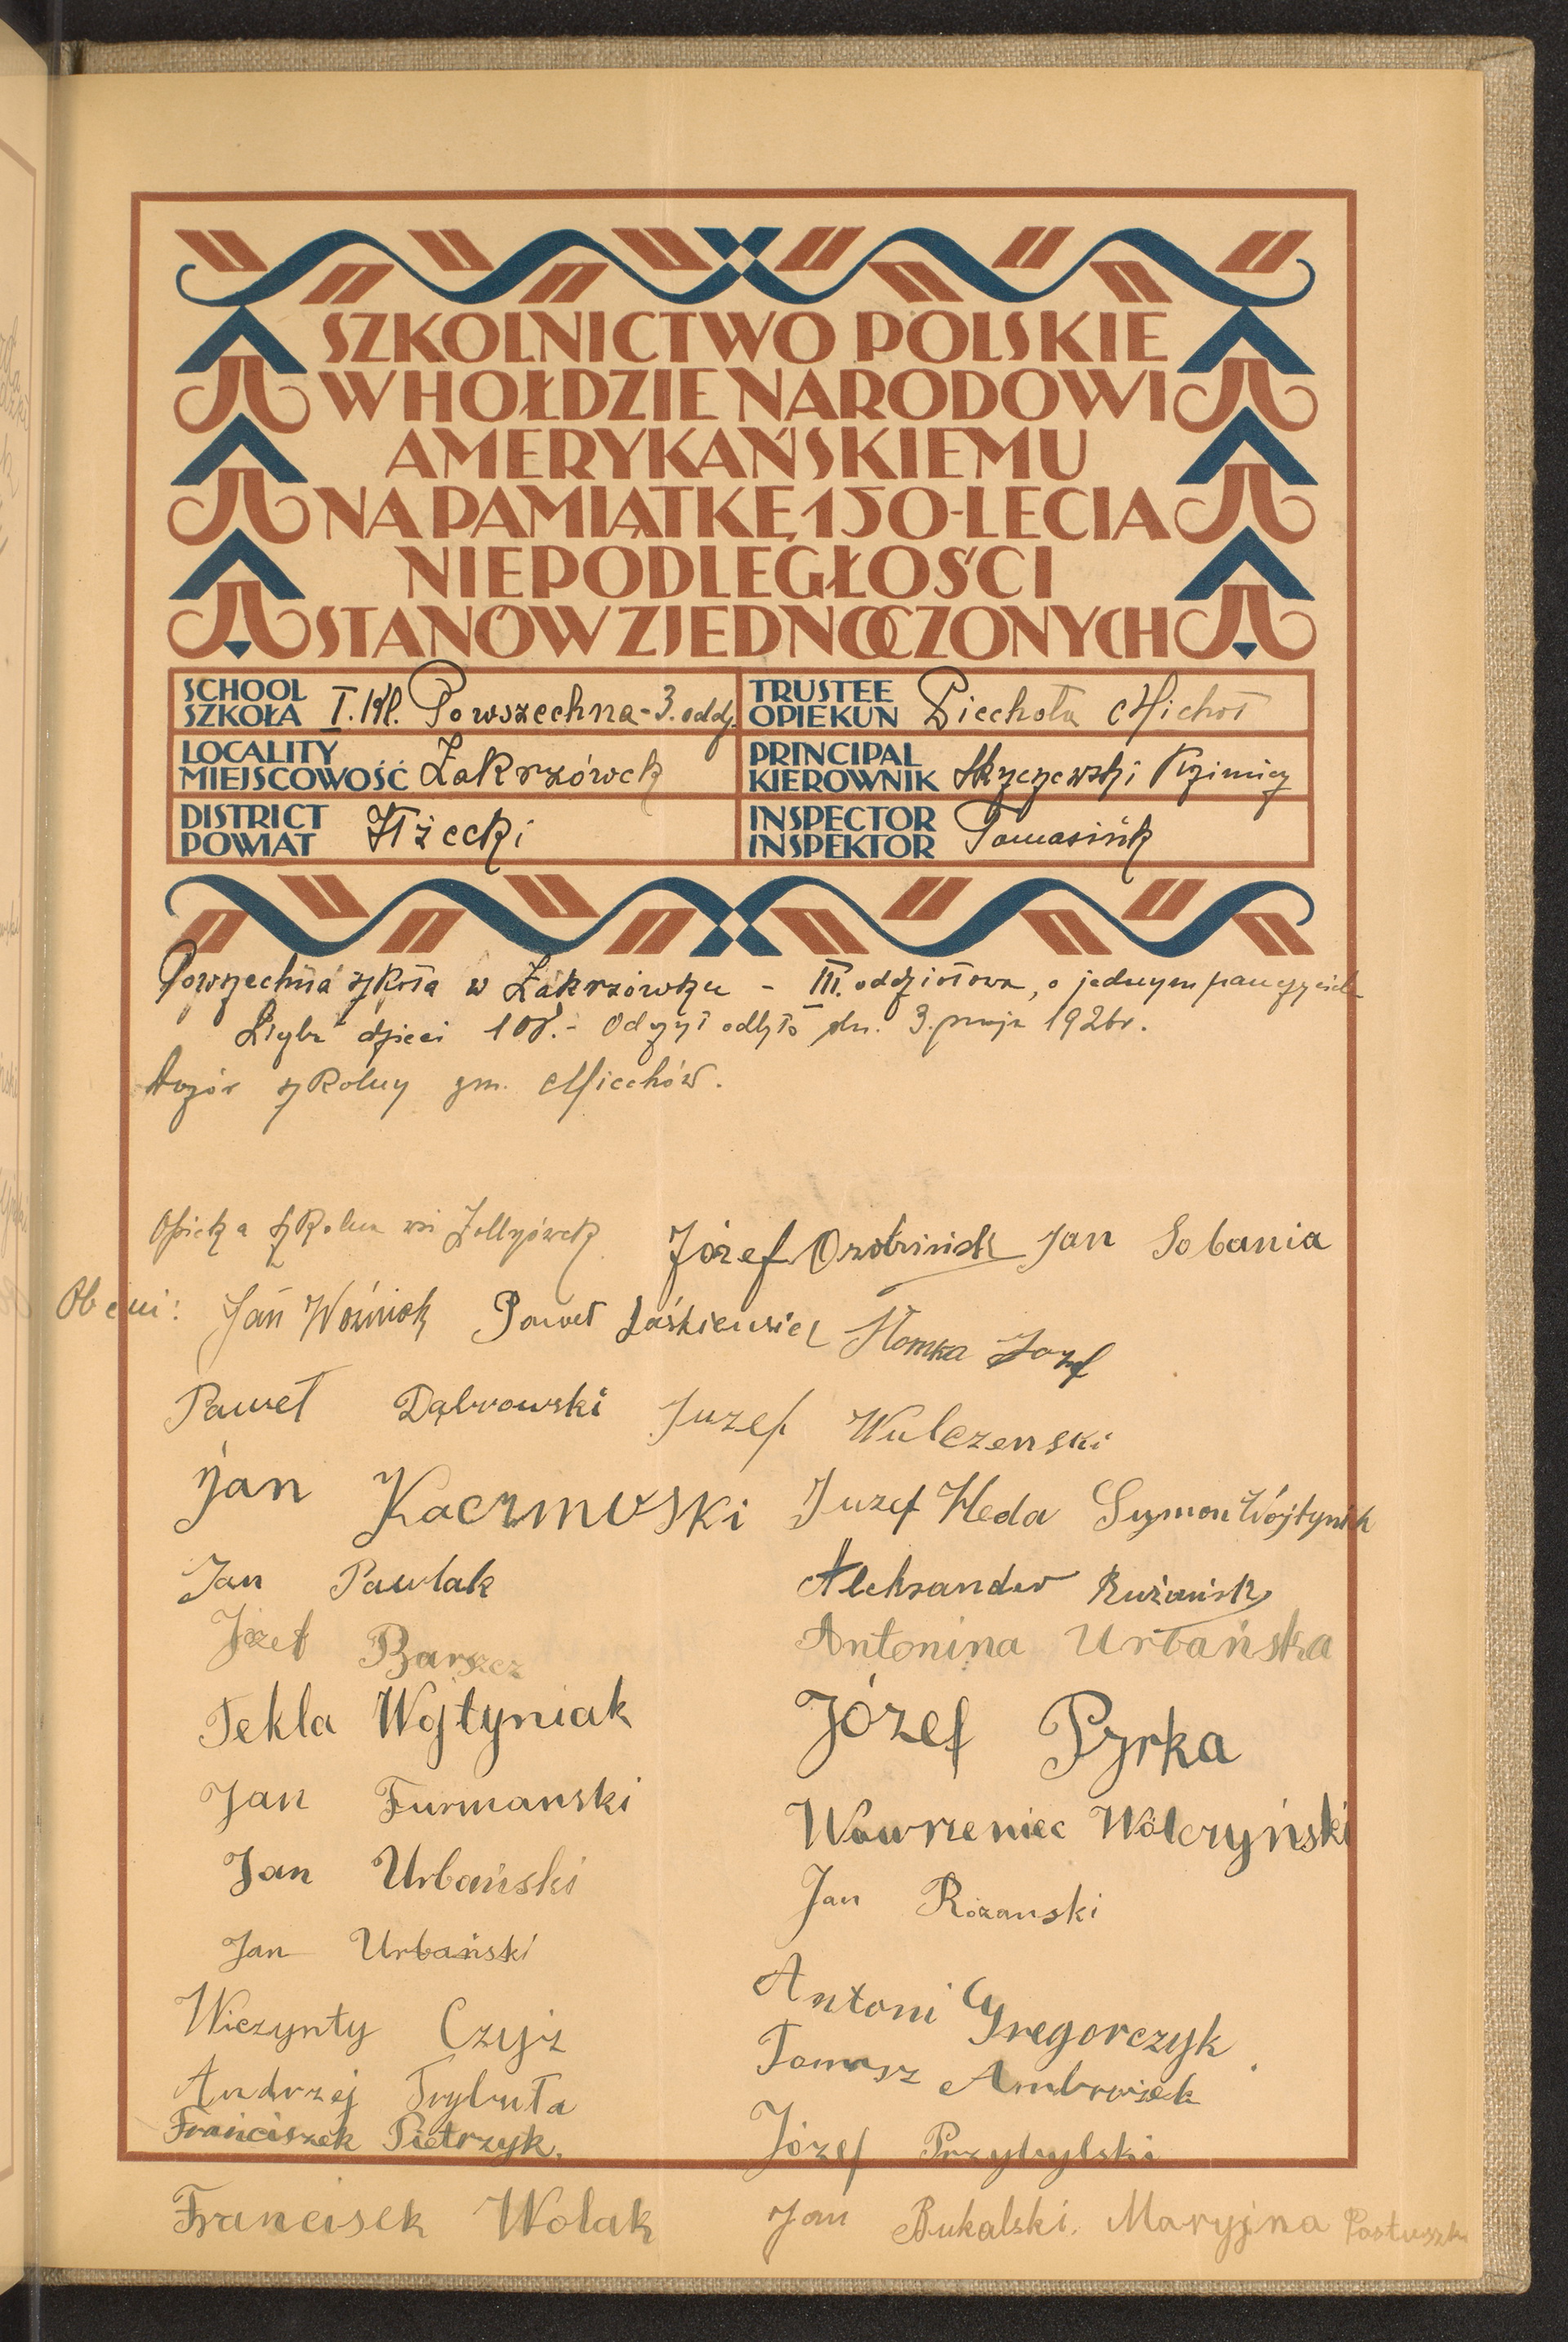 SZKOLNICTWO POLSKIE
W HOŁDZIE NARODOWI
AMERYKAŃSKIEMU
NA PAMIĄTKĘ 150-LECIA
NIEPODLEGŁOŚCI
STANÓW ZJEDNOCZONYCH
SCHOOL SZKOŁA I. Kl. Powszechna - 3. oddz. TRUSTEE OPIEKUN Piechota Michał
LOCALITY MIEJSCOWOŚĆ Zakrzówek PRINCIPAL KIEROWNIK
DISTRICT POWIAT Iłżecki INSPECTOR INSPEKTOR
Powszechna szkoła w Zakrzówku - III. oddziałowa, o jednym nauczycielu
Liczba dzieci 108. - Odczyt odbył się dn. 3. maja 1926 r.
Dozór szkolny gm. Miechów.
Opieka szkolna wsi
Józef Jan Sobania
Obecni: Jan Woźniak Paweł Łaśkiewicz Słomka Józef
Paweł Dąbrowski Juzef Wulczenski
Jan Juzef Heda Szymon Wójtyniak
Jan Pawlak Aleksander
Józef Barszcz Antonina Urbańska
Tekla Wojtyniak Józef Pyrka
Jan Furmanski Wawrzeniec Wólczyński
Jan Urbański Jan Rózanski
Jan Urbański
Wiczynty Czyż Antoni Gregorczyk
Andrzej Trybuła Tomasz Ambroziak
Franciszek Pietrzyk. Józef Przybylski
Francisek Wolak Jan Bukalski. Maryjna Pastuszka